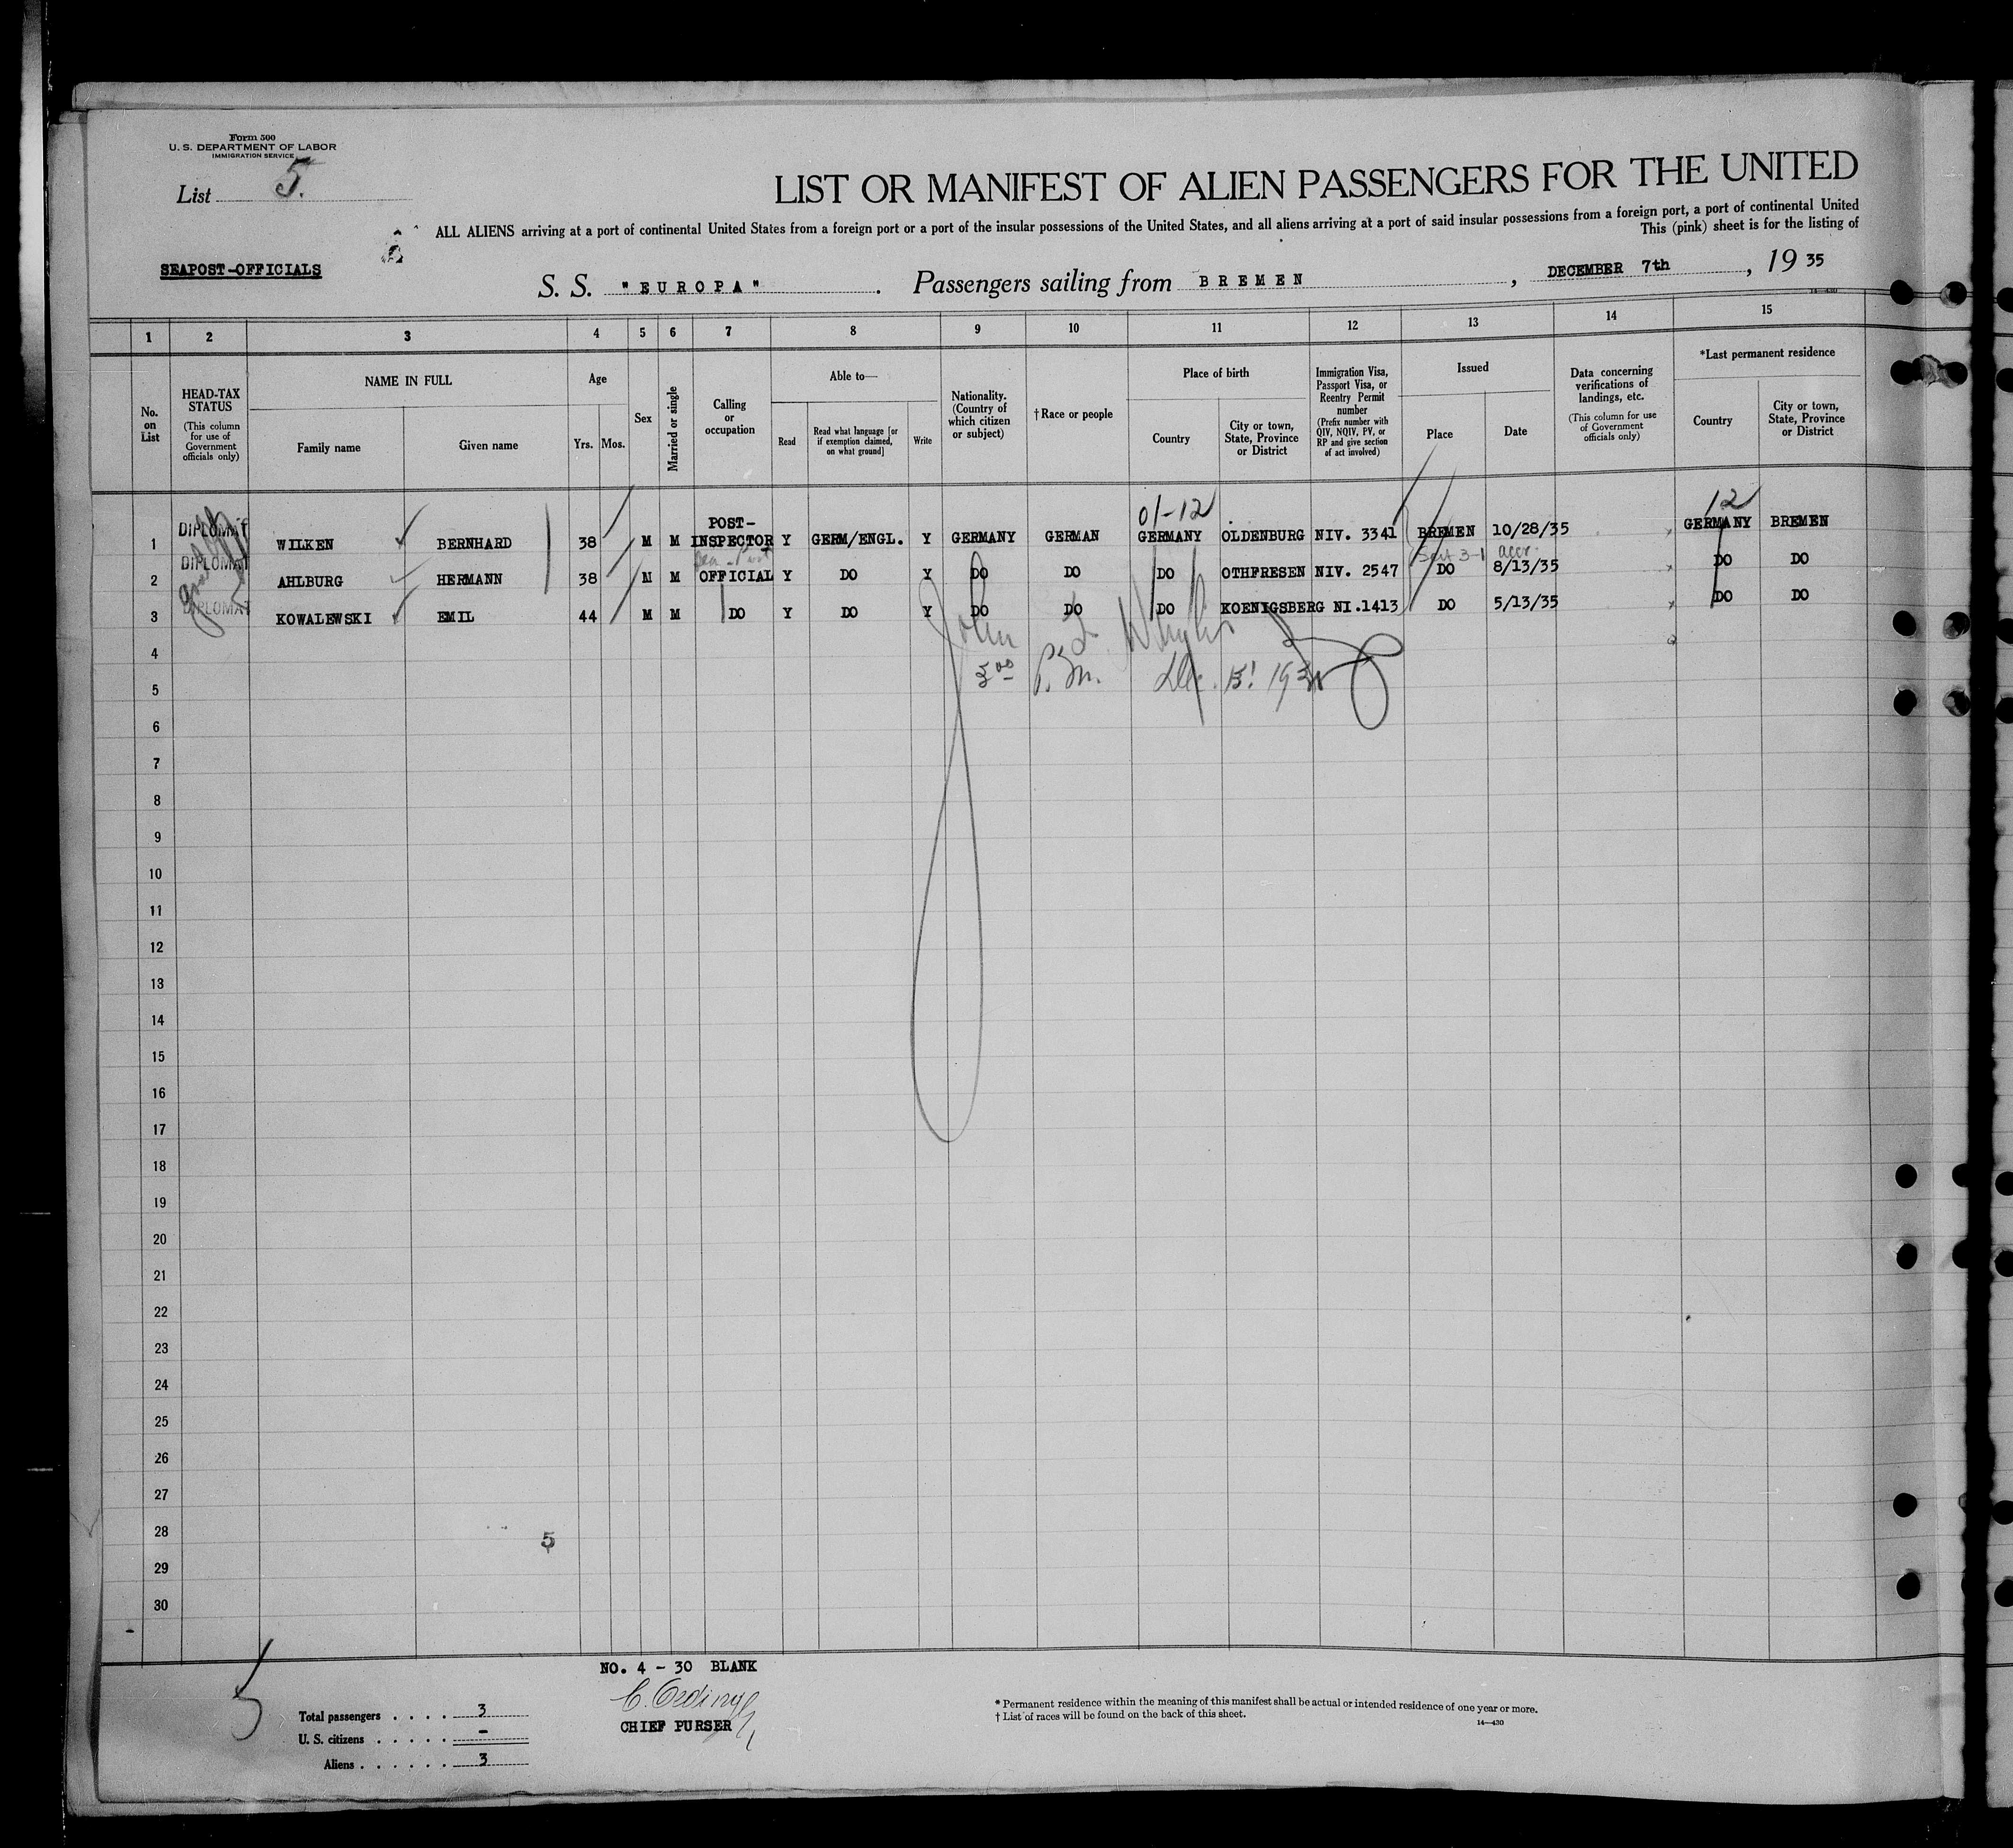 Form 500
U. S. DEPARTMENT OF LABOR
IMMIGRATION SERVICE
List 5.
LIST OR MANIFEST OF ALIEN PASSENGERS FOR THE UNITED
ALL ALIENS arriving at a port of continental United States from a foreign port or a port of the insular possessions of the United States, and all aliens arriving at a port of said insular possessions from a foreign port, a port of continental United
This (pink) sheet is for the listing of
SEAPOST-OFFICIALS
S. S. "EUROPA". Passengers sailing from BREMEN, DECEMBER 7th, 19 35
14—430
1 2 3 4 5 6 7 8 9 10 11 12 13 14 15
No. on List
HEAD-TAX STATUS (This column for use of Government officials only)
NAME IN FULL
Family name
Given name
Age
Yrs. Mos.
Sex
Married or single
Calling or occupation
Able to—
Read
Read what language [or if exemption claimed, on what ground]
Write
Nationality. (Country of which citizen or subject)
†Race or people
Place of birth
Country
City or town, State, Province or District
Immigration Visa, Passport Visa, or Reentry Permit number (Prefix number with QIV, NQIV, PV, or RP and give section of act involved)
Issued
Place
Date
Data concerning verifications of landings, etc. (This column for use of Government officials only)
*Last permanent residence
Country
City or town, State, Province or District
01-12 12
1 DIPLOMAT WILKEN BERNHARD 38 M M POST-INSPECTOR Y GERM/ENGL. Y GERMANY GERMAN GERMANY OLDENBURG NIV. 3341 BREMEN 10/28/35 GERMANY BREMEN
Sect 3-1
2 DIPLOMAT AHLBURG HERMANN 38 M M OFFICIAL Y DO Y DO DO DO OTHFRESEN NIV. 2547 DO 8/13/35 DO DO
3 DIPLOMAT KOWALEWSKI EMIL 44 M M DO Y DO Y DO DO DO KOENIGSBERG NI.1413 DO 5/13/35 DO DO
4 John
5 P.M. Dec. 13!
6
7
8
9
10
11
12
13
14
15
16
17
18
19
20
21
22
23
24
25
26
27
28 5
29
30
NO. 4 - 30 BLANK
CHIEF PURSER
Total passengers . . . . 3
U. S. citizens . . . . . -
Aliens . . . . . . 3
* Permanent residence within the meaning of this manifest shall be actual or intended residence of one year or more.
† List of races will be found on the back of this sheet.
14—430